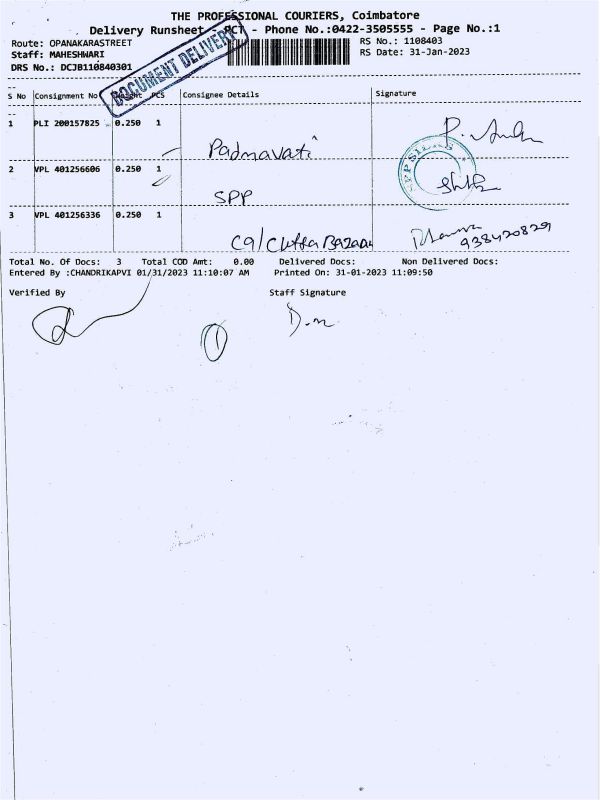 THE PROFESSIONAL COURIERS, Coimbatore
Delivery Runsheet - PCT - Phone No.:0422-3505555 - Page No.:1
Route: OPANAKARASTREET RS No.: 1108403
Staff: MAHESHWARI RS Date: 31-Jan-2023
DRS No.: DCJB110840301
DOCUMENT DELIVERY
S No Consignment No Weight PCS Consignee Details Signature
1 PLI 200157825 0.250 1
Padmavati
2 VPL 401256606 0.250 1
SPP
SPP SILKS
3 VPL 401256336 0.250 1
C9/ Chetta Bazaar
938420829
Total No. Of Docs: 3 Total COD Amt: 0.00 Delivered Docs: Non Delivered Docs:
Entered By :CHANDRIKAPVI 01/31/2023 11:10:07 AM Printed On: 31-01-2023 11:09:50
Verified By Staff Signature
D.m
1